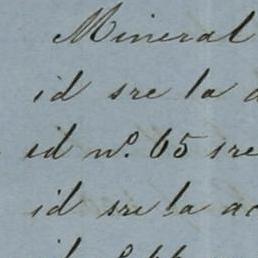 Mineral
id sre la
id nº. 65 sre
id sre la ac